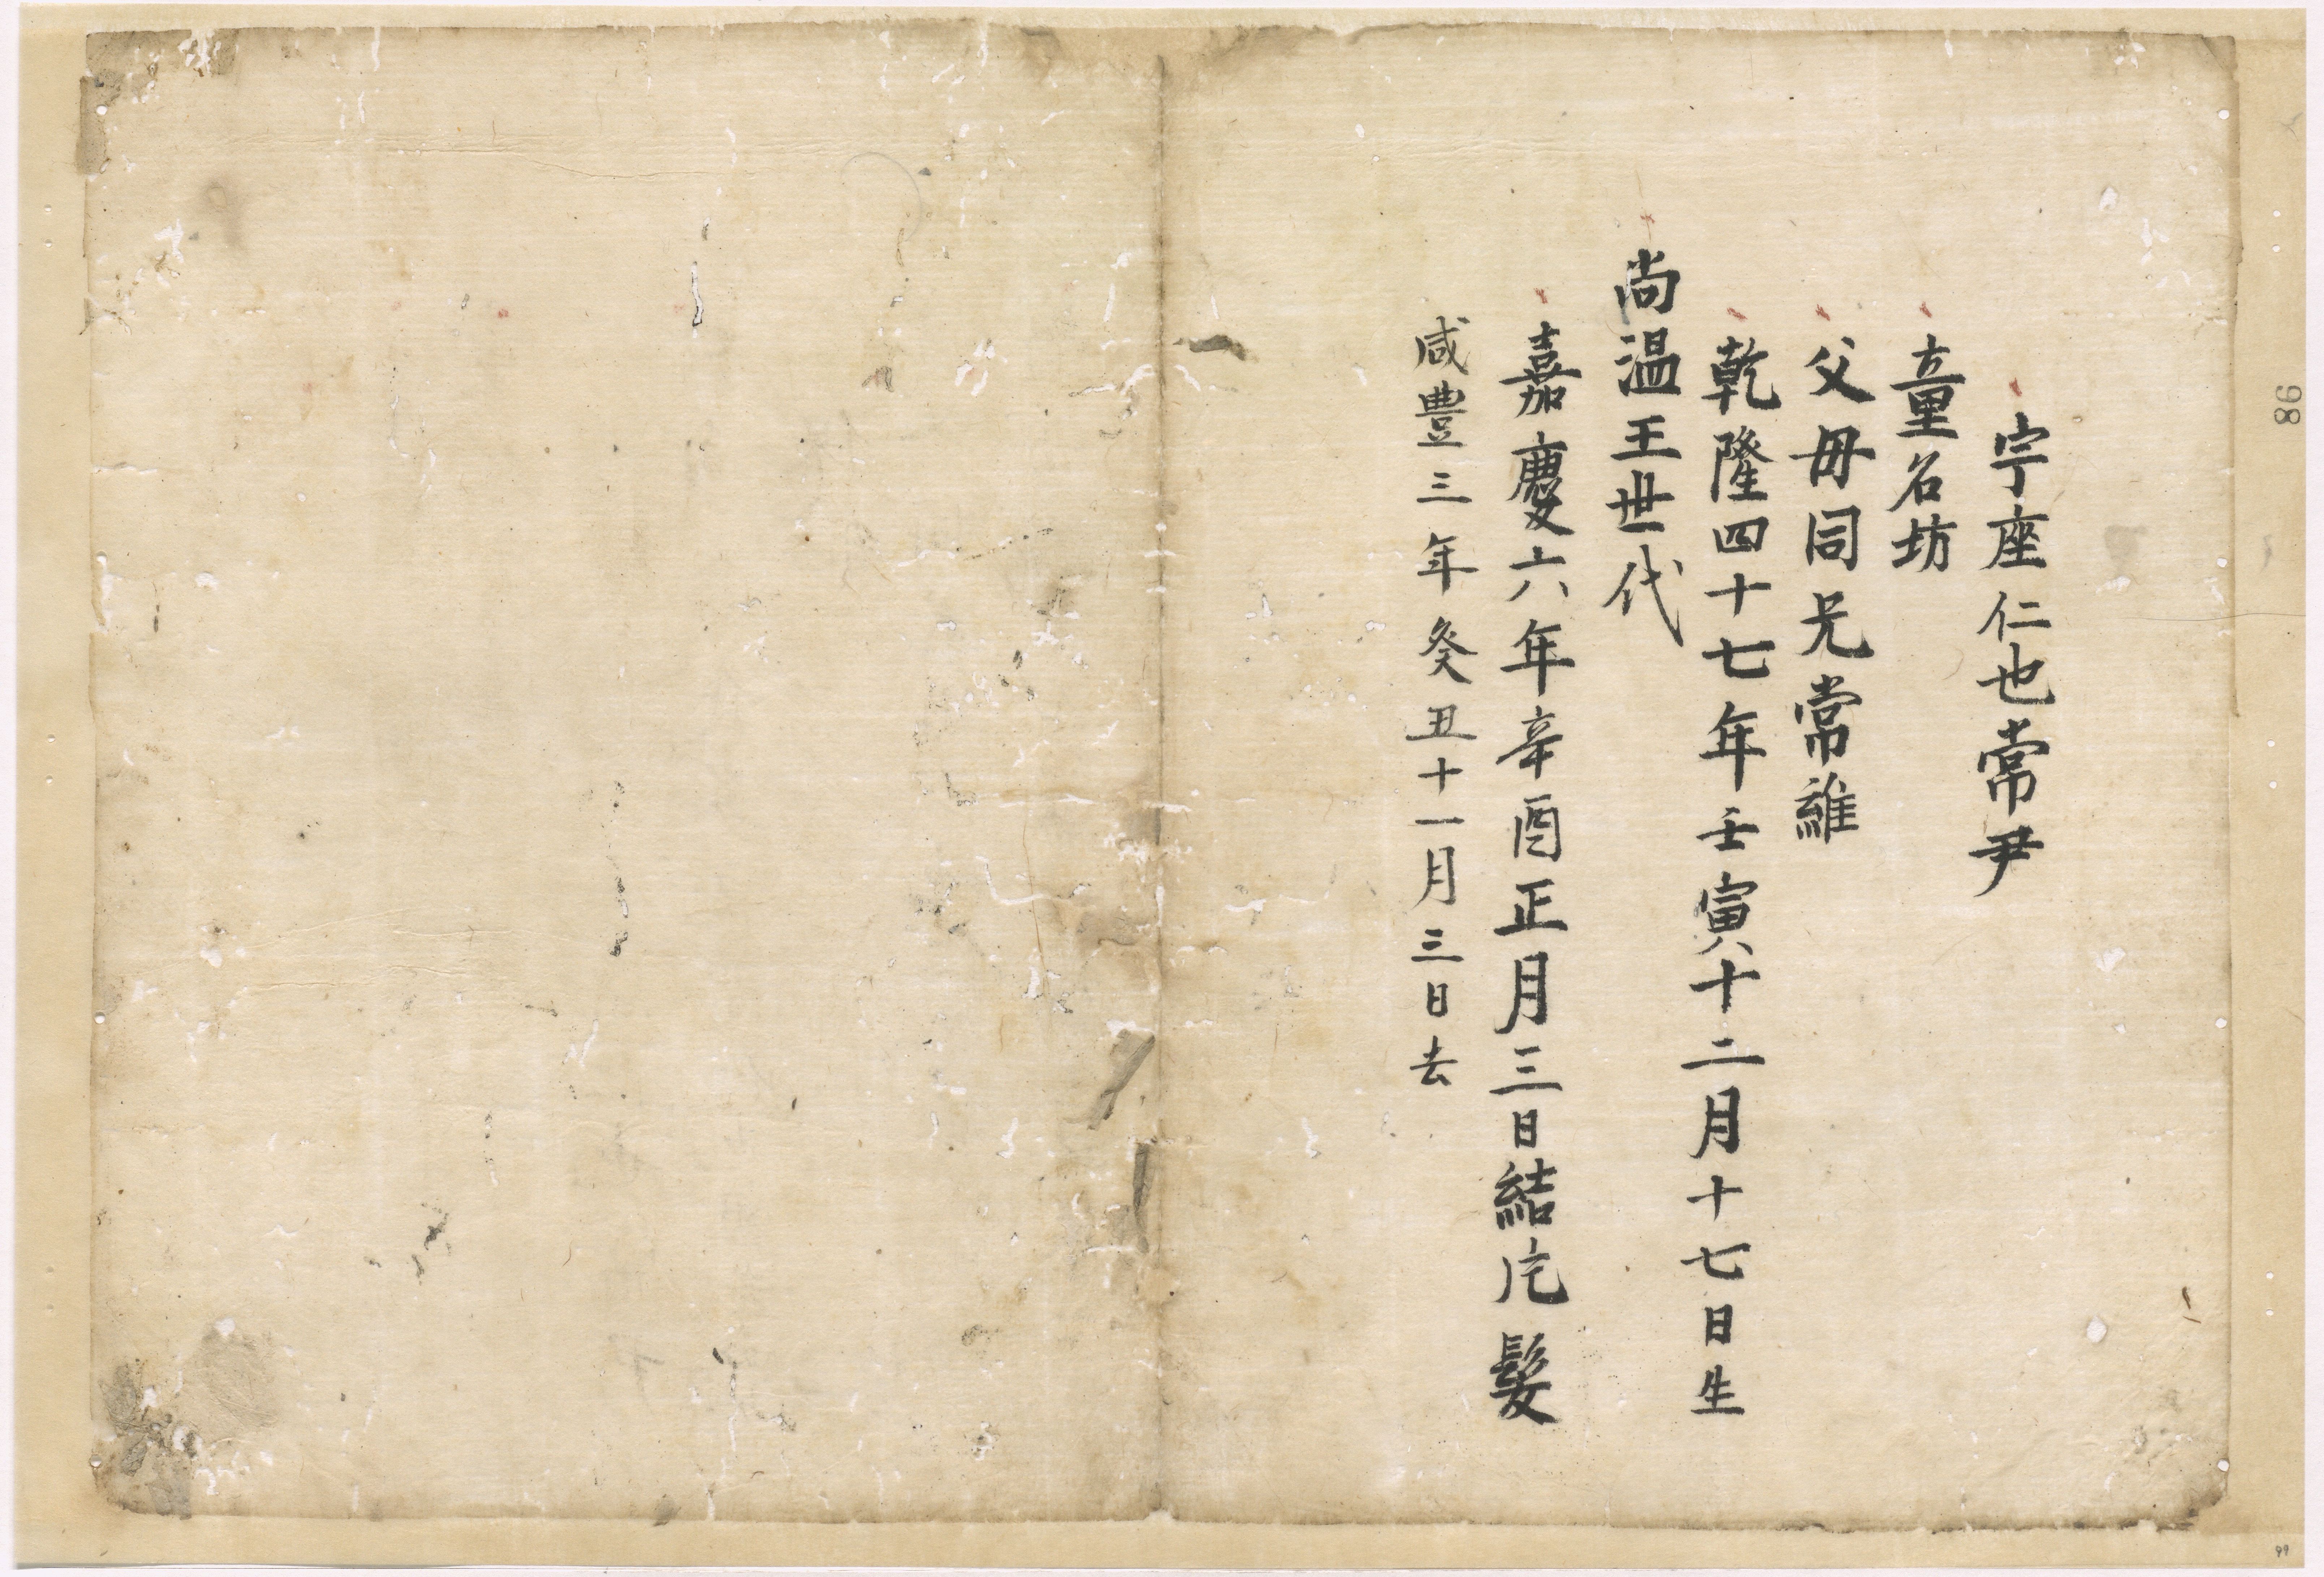 宇座仁也常尹
童名坊
父毋同兄常維
乾隆四十七年壬寅十二月十七日生
尚温王世代
嘉慶六年辛酉正月三日結片髪
咸豊三年癸丑十一月三日去
98
99